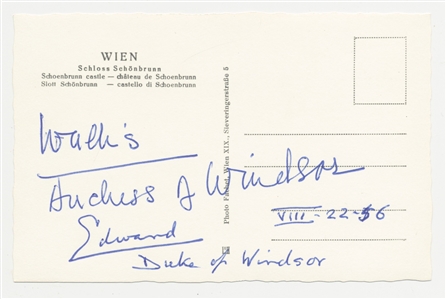 WIEN
Schloss Schönbrunn
Schoenbrunn castle — château de Schoenbrunn
Slott Schönbrunn — castello di Schoenbrunn
Wien XIX., Sieveringerstraße 5
Photo
Duchess of Windsor
VIII-22-56
Edward
Duke of Windsor